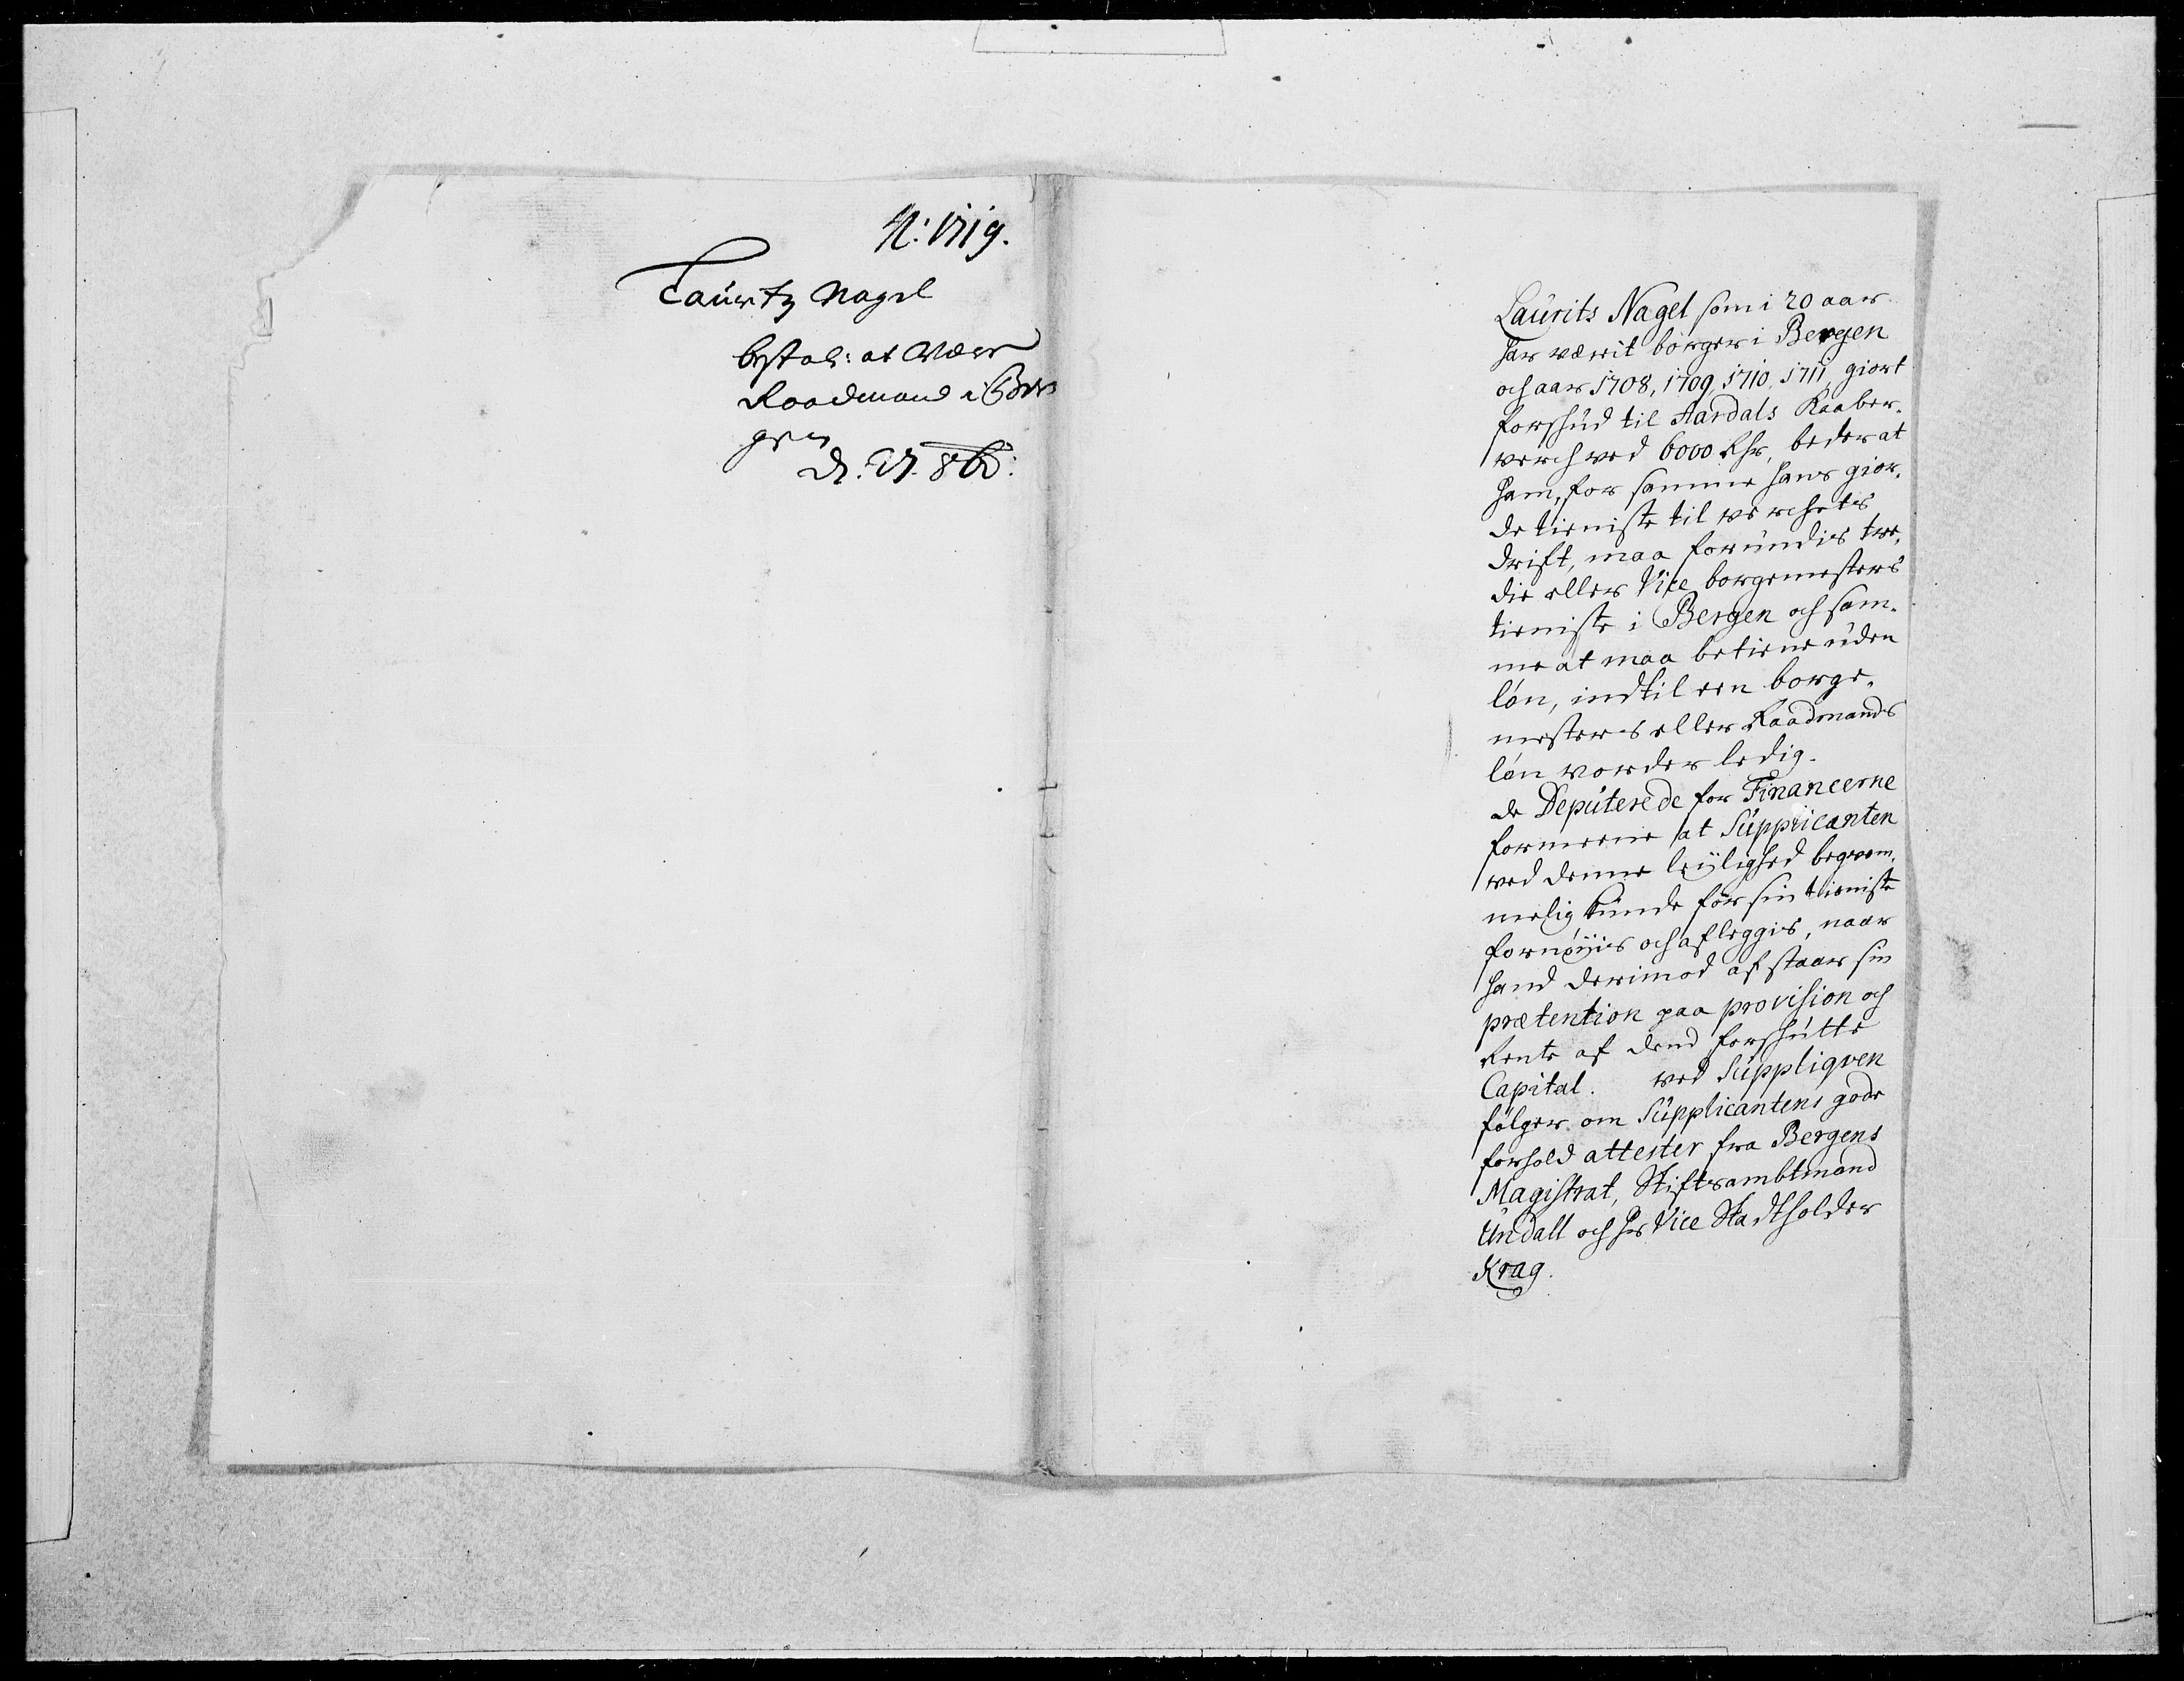 N: 1719.
Lauritz Nagel
bestal: at være
Raadmand i Ber
gen
D. 27. 8b:
Laurits Nagel som i 20 aar
har værit borger i Bergen
och aar 1708, 1709, 1710, 1711, giort
forskud til Aardals Kaaber-
werch ved 6000 Rhr, beder at
ham, for samme hans gior-
de tieniste til werchets
drift, maa forundis tre-
die eller Vice borgemesters
tieniste i Bergen och sam-
me at maa betiene uden
lón, indtil een borge-
mesters eller Raadmands
lón vorder ledig.
de Deputerede for Financerne
formeene at Supplicanten
ved denne leylighed beqvem-
melig kunde for sin tieniste
fornóyis och afleggis, naar
hand derimod afstaar sin
prætention paa provision och
Rente af dend forskutte
Capital. ved Suppliqven
fólger om Supplicantens gode
forhold attester fra Bergens
Magistrat, Stiftsambtmand
Undall och hr Vice Stadtholder
Krag.